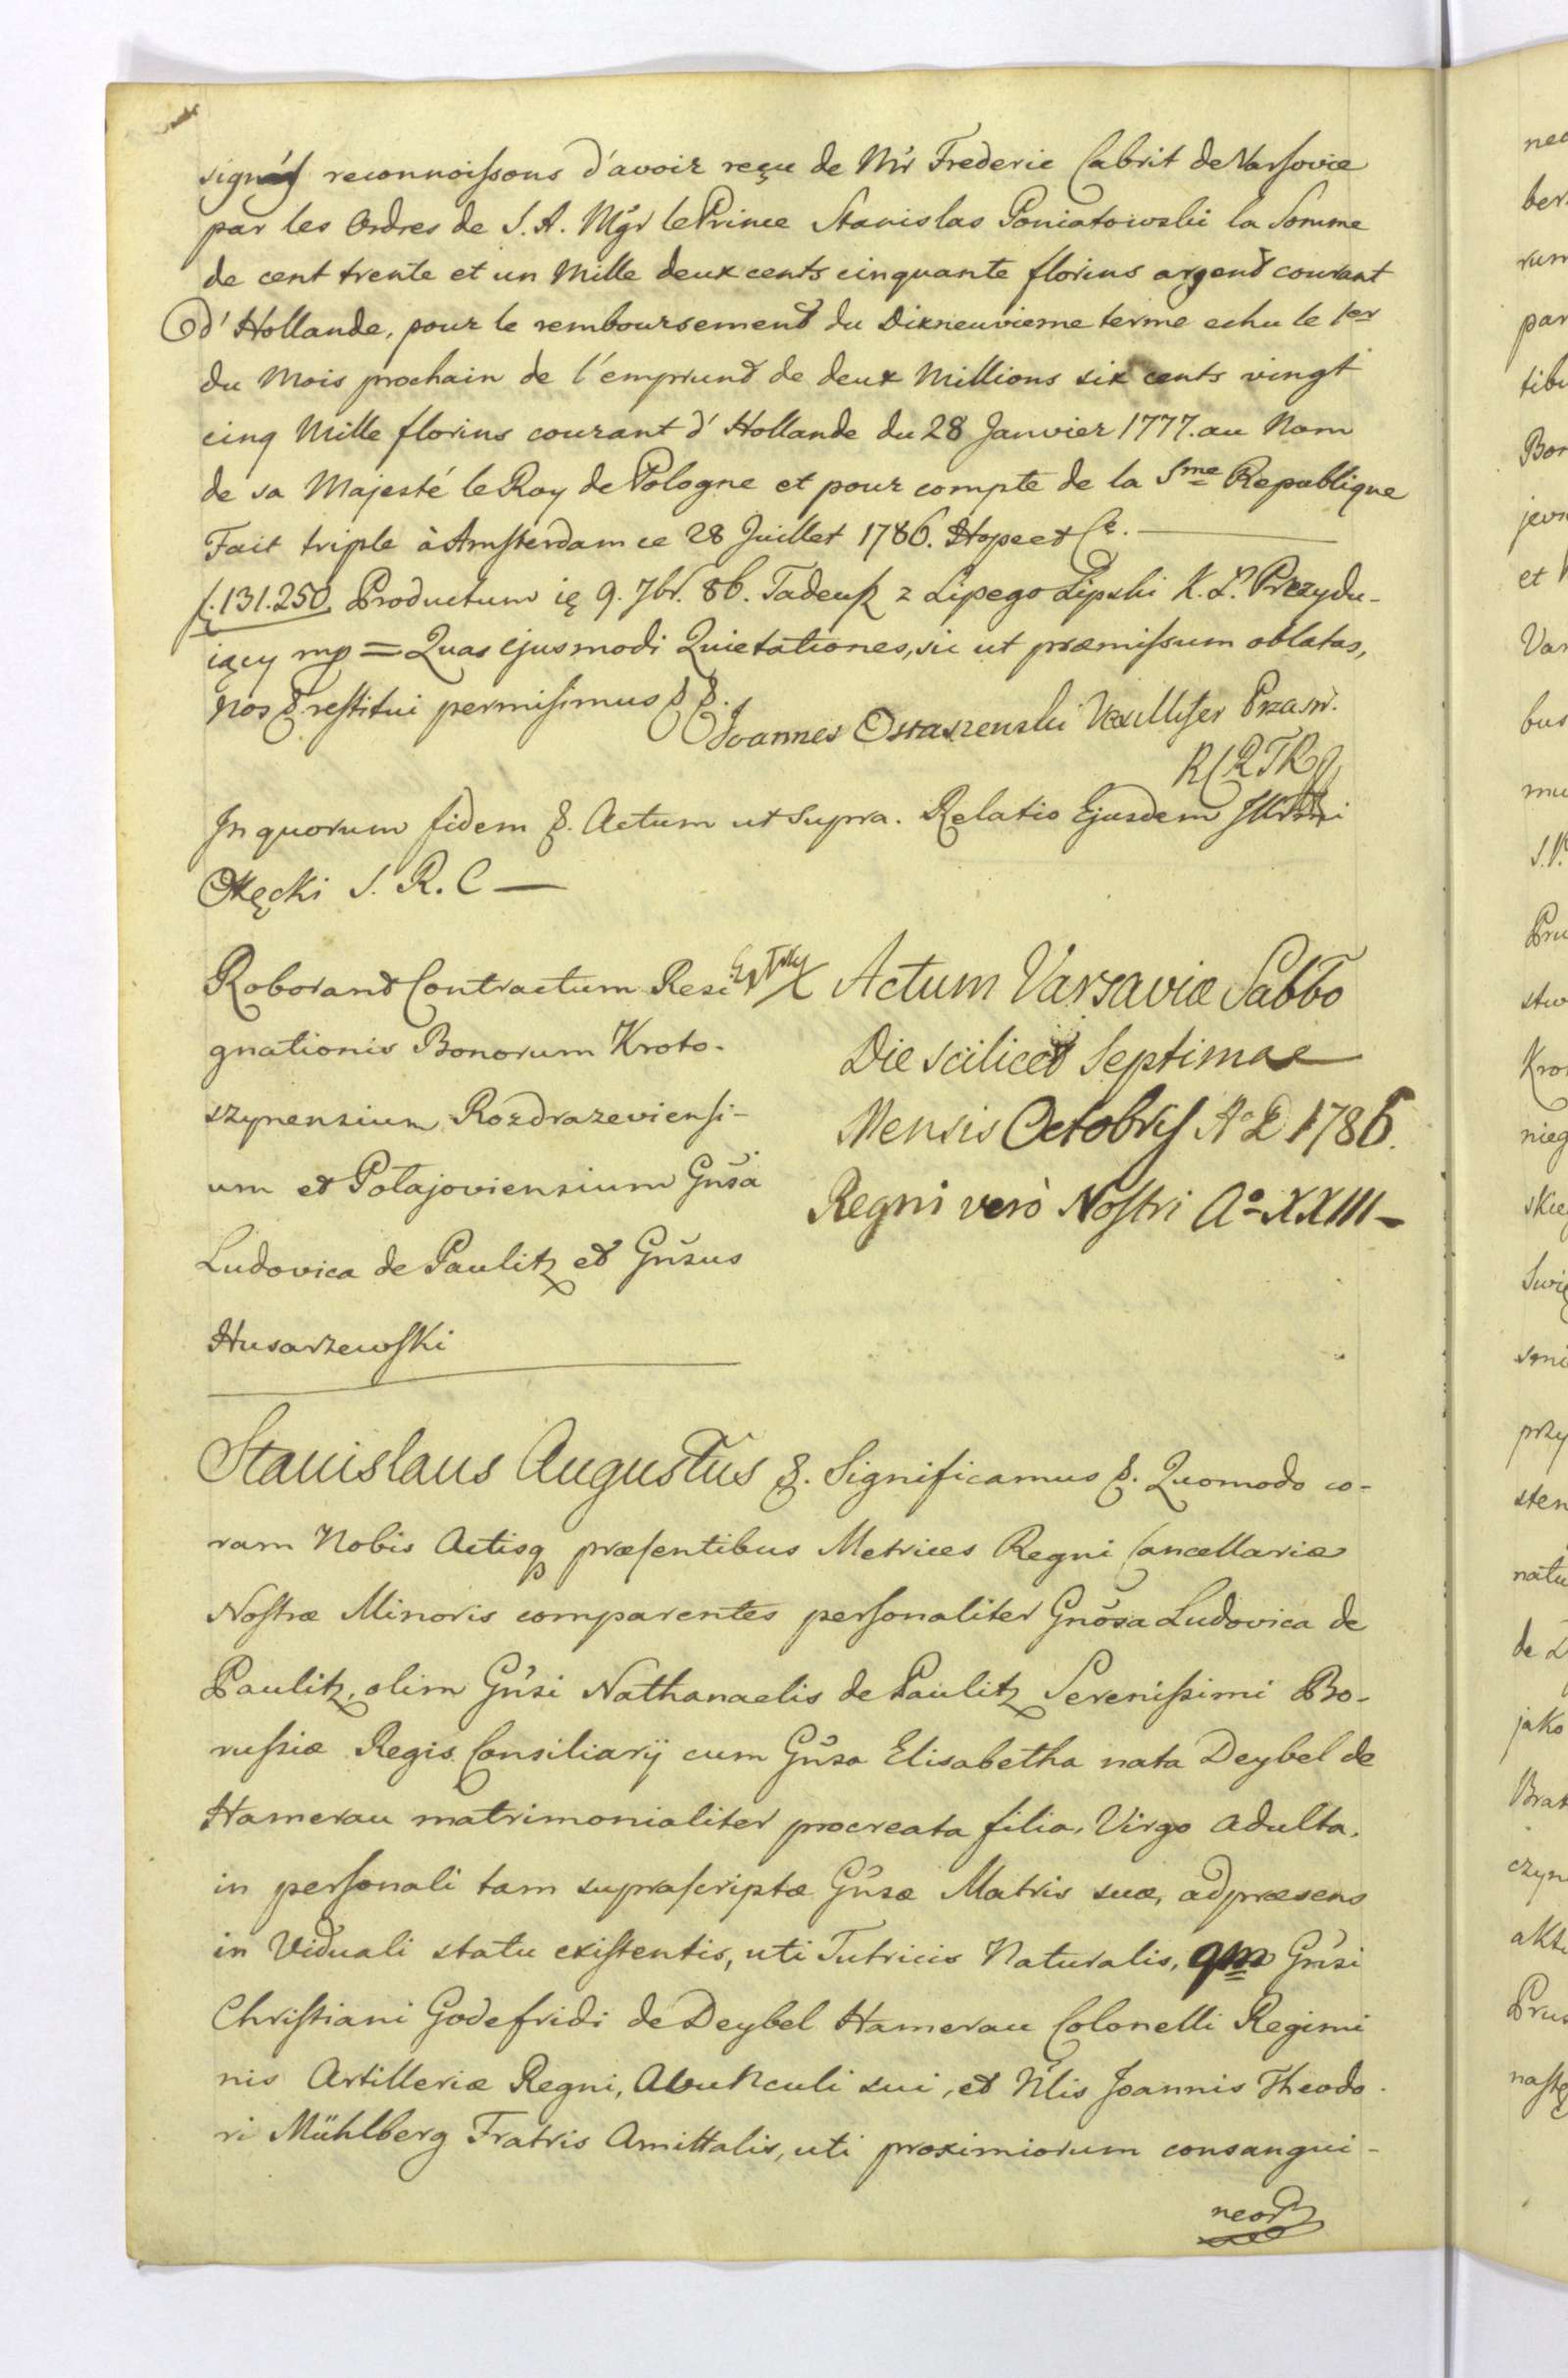 signés reconnoissons d'avoir reçu de Mr Frederic Cabrit de Varsovie
par les Ordres de S. A. Mgr le Prince Stanislas Poniatowski la Somme
de cent trente et un Mille deux cents cinquante florins argent courant
d'Hollande, pour le remboursement du Dixneuvieme terme echu le 1er
du Mois prochain de l'emprunt de deux Millions six cents vingt
cinq Mille florins courant d'Hollande du 28 Janvier 1777. au Nom
de sa Majesté le Roy de Pologne et pour compte de la Sme Republique
Fait triple à Amsterdam ce 28 Juillet 1786. Hope et Ce.
f. 131.250 Productum ię 9. 7br. 86. Tadeusz z Lipego Lipski K. Ł. Prezydu-
iący mp = Quas ejusmodi Quietationes, sic ut præmissum oblatas,
nos & restitui permisimus & &.
Joannes Ostaszewski Vexillifer Przasn.
In quorum fidem &. Actum ut supra. Relatio Ejusdem
Okęcki S. R. C —
Roborant Contractum Resi-
gnationis Bonorum Kroto-
szynensium Rozdrazeviensi-
um et Potajoviensium Gnsa
Ludovica de Paulitz et Gnsus
Husarzewski
Actum Varsaviæ Sabbo
Die scilicet Septima
Mensis Octobris A D 1786.
Regni verò Nostri Ao XXIII —
Stanislaus Augustus &. Significamus &. Quomodo co-
ram Nobis Actisq præsentibus Metrices Regni Cancellariæ
Nostræ Minoris comparentes personaliter Gnosa Ludovica de
Paulitz, olim Gnsi Nathanaelis de Paulitz Serenissimi Bo-
russiæ Regis Consiliarij cum Gnsa Elisabetha nata Deybel de
Hamerau matrimonialiter procreata filia, Virgo adulta,
in personali tam suprascriptæ Gnsæ Matris suæ, ad præsens
in Viduali statu existentis, uti Tutricis Naturalis, qm Gnsi
Christiani Godefridi de Deybel Hamerau Colonelli Regimi
nis Artilleriæ Regni, Avunculi sui, et Nlis Joannis Theodo-
ri Mühlberg Fratris Amittalis, uti proximiorum consangui-